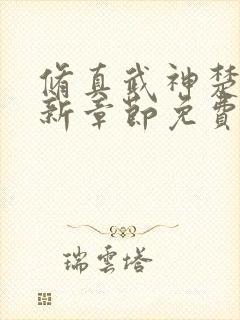 脩真武神楚
新章節免費
瑞雲塔